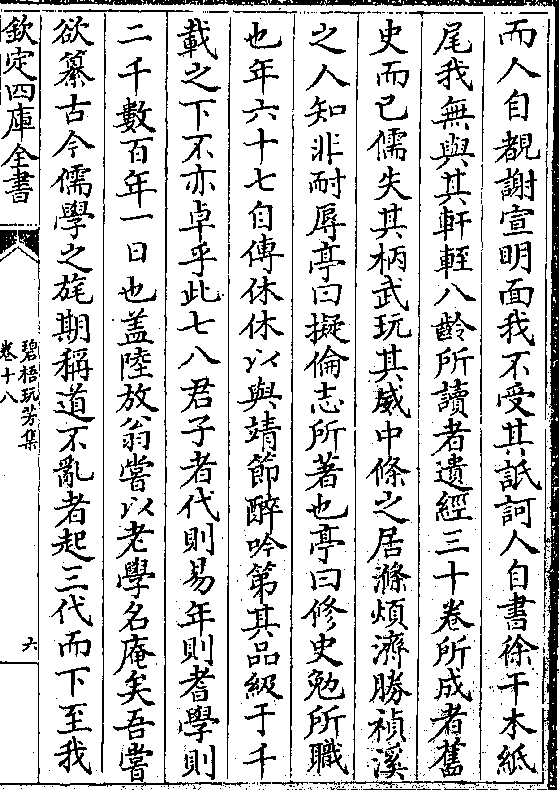 而人自覩謝宣明面我不受其詆訶人自書徐干木紙
尾我無與其軒輊八齡所讀者遺經三十卷所成者舊
史而已儒失其柄武玩其威中條之居滌煩濟勝禎溪
之人知非耐辱亭曰擬倫志所著也亭曰修史勉所職
也年六十七自傳休休以與靖節醉吟第其品級于千
載之下不亦卓乎此七八君子者代則易年則耆學則
二千數百年一日也蓋陸放翁嘗以老學名庵矣吾嘗
欲纂古今儒學之旄期稱道不亂者起三代而下至我
欽定四庫全書
碧梧玩芳集
卷十八
六